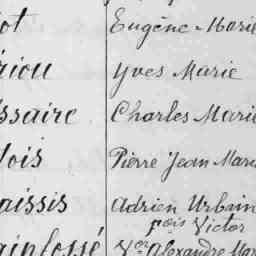 ot Eugène Marie
riou Yves Marie
ssaire Charles Marie
lois Pierre Jean Mari
aissis Adrien Urbain
pois Victor
ainfossé Vor Alexandre Mar